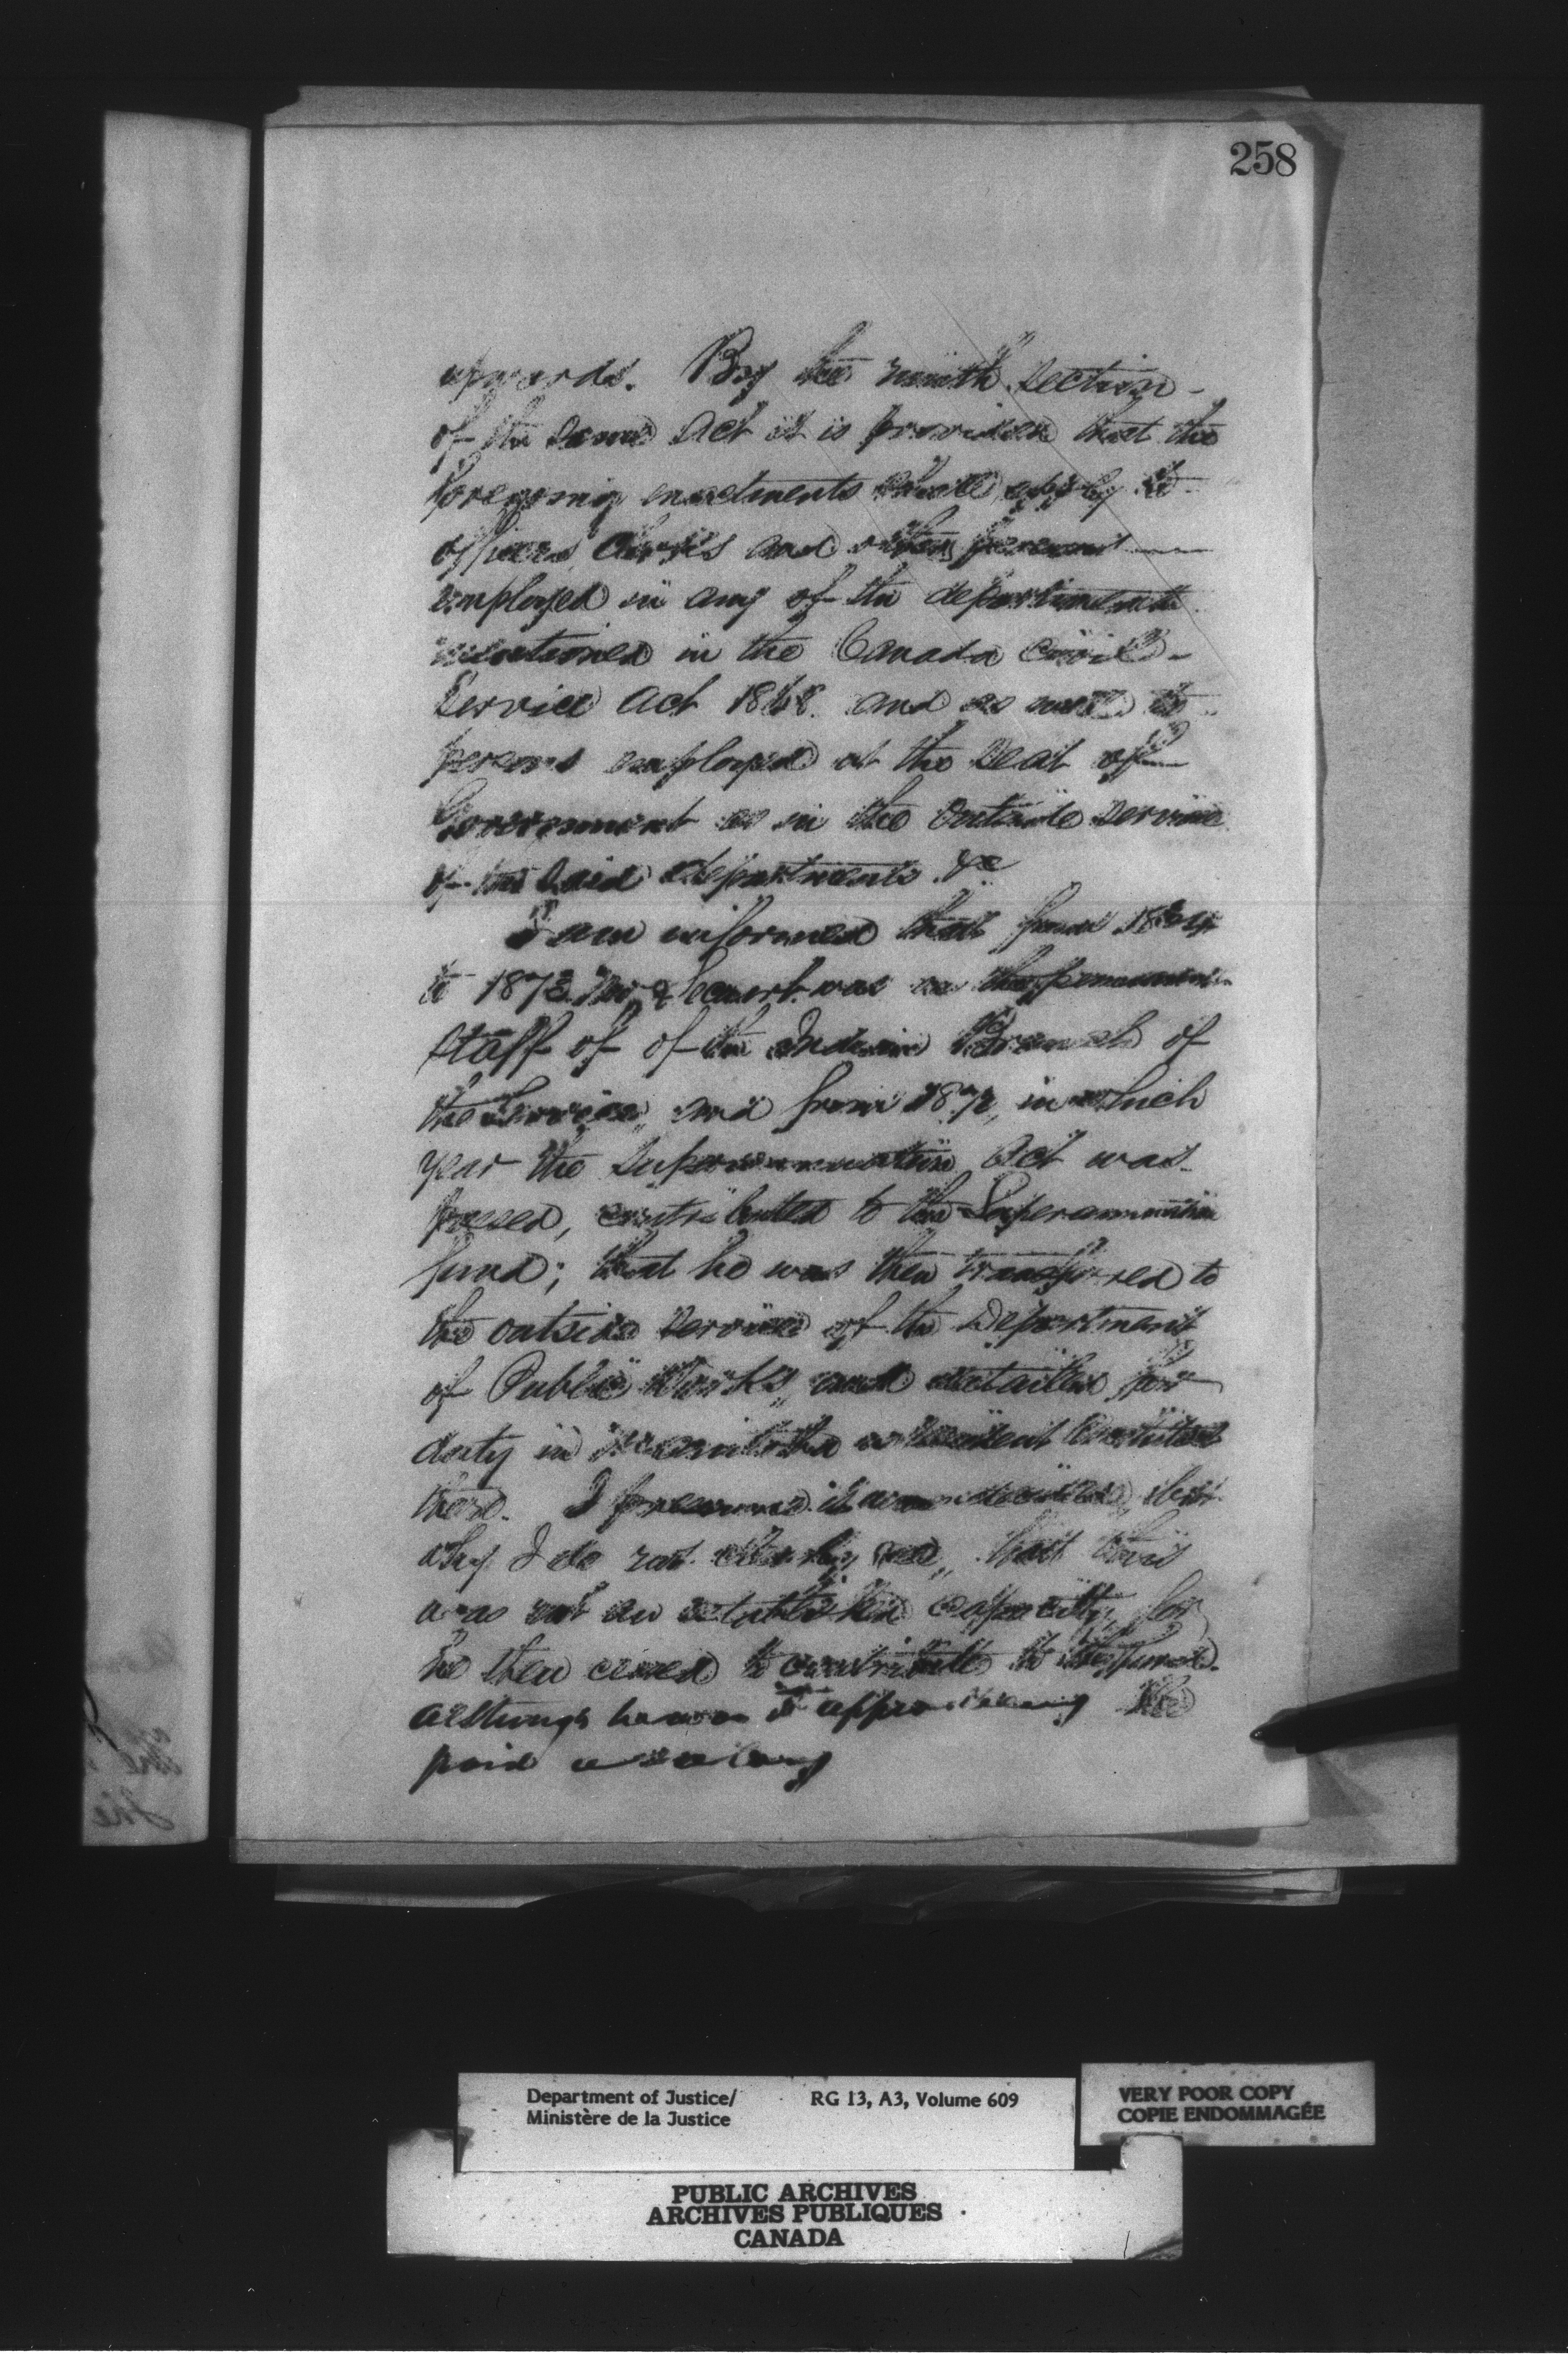 258
upwards. By the ninth section
of the same Act it is provided that the
foregoing enactments shall apply to
officers, clerks and other persons
employed in any of the departments
mentioned in the Canada Civil
Service Act 1868. and as well to
persons employed at the Seat of
Government as in the outside service
of the said departments &c
I am informed that from
to 1873. Mr was on the permanent
staff of of the Indian Branch of
the Service, and from 187 , in which
year the Superannuation Act was
passed, contributed to the Superannuation
fund; that he was then transferred to
the outside service of the Department
of Public Works, and detailed for
duty in Manitoba
there. I presume it was decided,
why I do not clearly see, that this
was not an established capacity, for
he then ceased to contribute to the fund.
although he was
paid a salary
Department of Justice/
Ministère de la Justice
RG 13, A3, Volume 609
VERY POOR COPY
COPIE ENDOMMAGÉE
PUBLIC ARCHIVES
ARCHIVES PUBLIQUES
CANADA